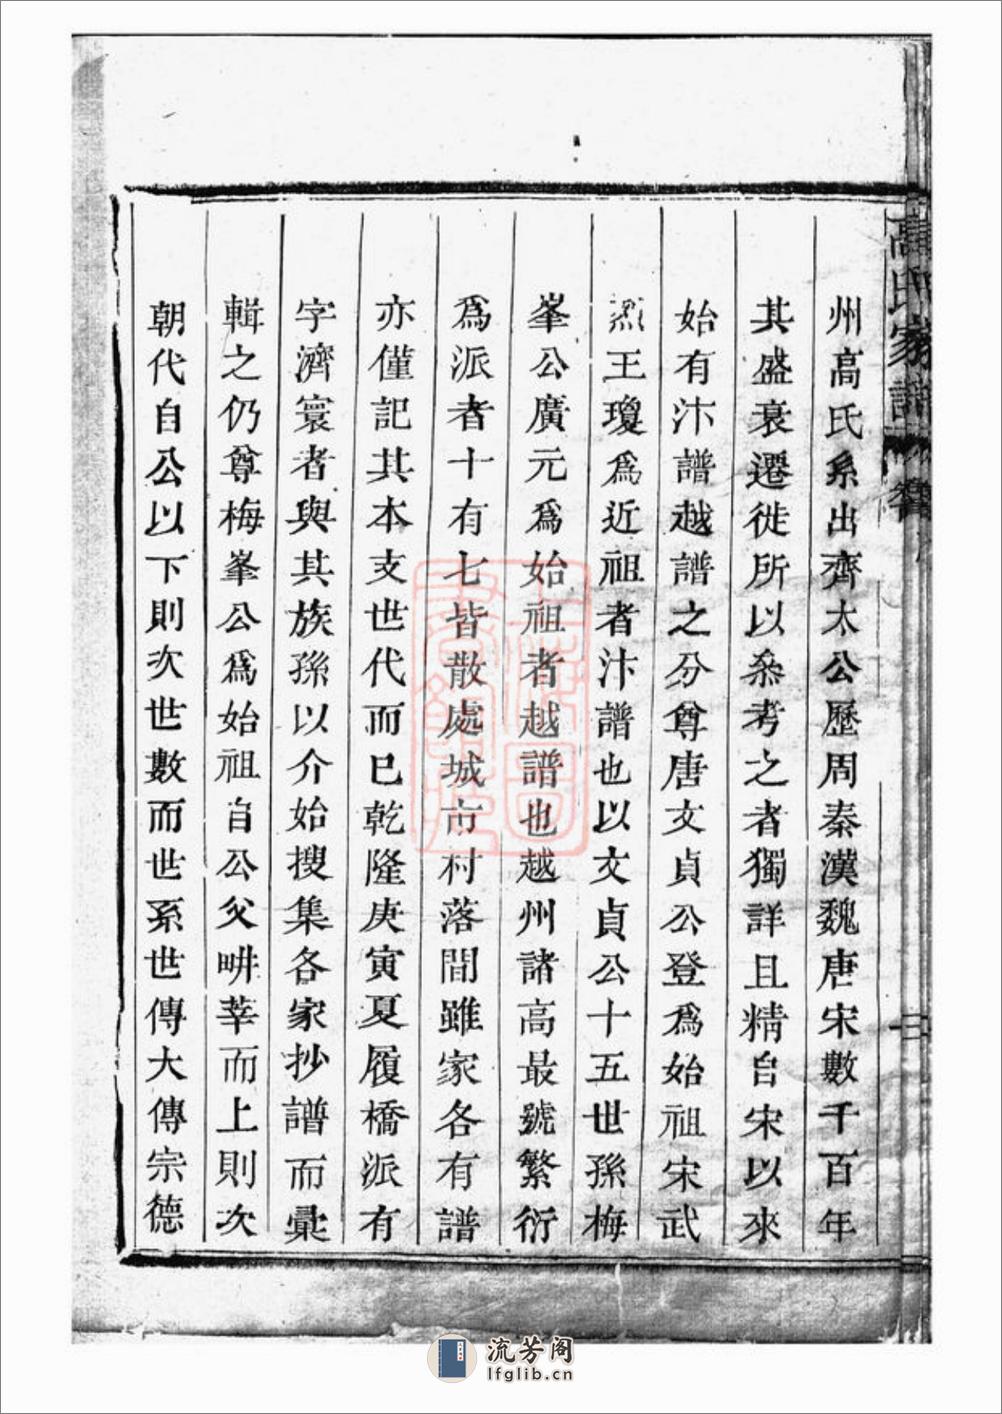 高氏家譜
州高氏系出齊太公歷周秦漢魏唐宋數千百年
其盛衰遷徙所以叅考之者獨詳且精自宋以來
始有汴譜越譜之分尊唐文貞公登爲始祖宋武
烈王瓊爲近祖者汴譜也以文貞公十五世孫梅
峯公廣元爲始祖者越譜也越州諸高最號繁衍
爲派者十有七皆散處城市村落間雖家各有譜
亦僅記其本支世代而已乾隆庚寅夏履橋派有
字濟寰者與其族孫以介始搜集各家抄譜而彙
輯之仍尊梅峯公爲始祖自公父畊莘而上則次
朝代自公以下則次世數而世系世傳大傳宗德
流芳阁
lfglib.cn